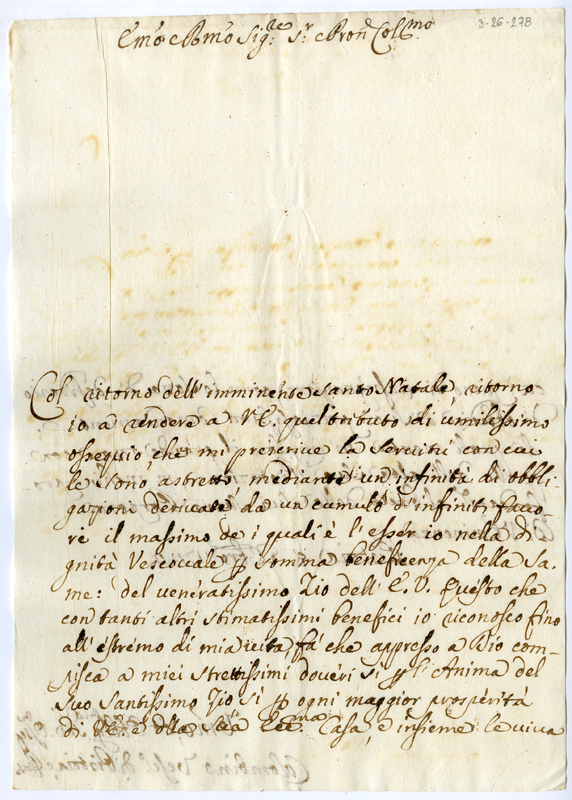 3-26-278
Emõ e Rmõ Sig.re S.r e Pron Col.mo
Col ritorno dell'imminente Santo Natale, ritorno
io a rendere a V.E. quel tributo di umilissimo
ossequio, che mi prescrive la servitù con cui
le sono astretto, mediante un'infinità di obbli-
gazioni derivate da un cumulo d'infiniti favo-
ri il massimo de i quali è l'esser io nella di
gnità Vescovale p somma beneficenza della Sa.
me: del veneratissimo Zio dell'E.V. Questo che
con tanti altri stimatissimi benefici io riconosco fino
all'estremo di mia vita, fà che appresso a Dio com-
pisca a miei strettissimi doveri sì p l'Anima del
suo Santissimo Zio sì p ogni maggior prosperità
di V.E. e della sua Ecc.ma Casa, e insieme le viva